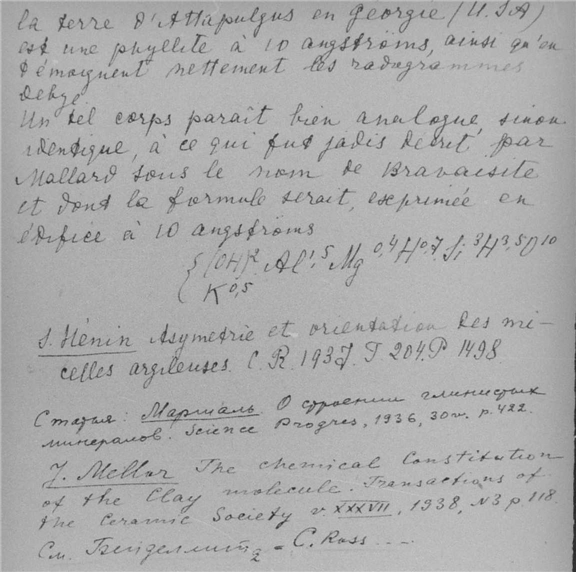 la terre d'Attapulgus en georgie (U.S.A)
est une phyllite à 10 angströms, ainsi qu'en
témoignent nettement les radogrammes
debye
Un tel corps paraît bien analogue, sinon
identique, à ce qui fut jadis decrit par
Mallard sous le nom de Bravaisite
et dont la formule serait, exprimée en
édifice à 10 angströms
{(OH)² Al¹,⁵ Mg⁰,⁴ H⁰,⁷ Si³ H³,⁵ O¹⁰
K⁰,⁵
S. Hénin Asymetrie et orientation des mi-
celles argileuses. C.R. 1937. T 204. P 1498
Статья: Маршаль О строении глинистых
минералов. Science Progres, 1936, 30 v. p. 422.
J. Mellor The chemical Constitution
of the Clay molecule. Transactions of
the Ceramic Society v XXXVII, 1938, N3 p. 118.
См. C. Ross